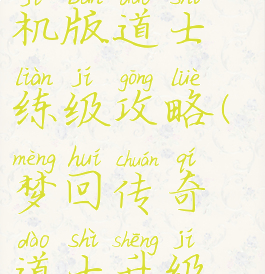 jī bǎn dào shì
机版道士
liàn jí gōng lüè
练级攻略(
mèng huí chuán qí
梦回传奇
dào shì shēng jí
道士升级